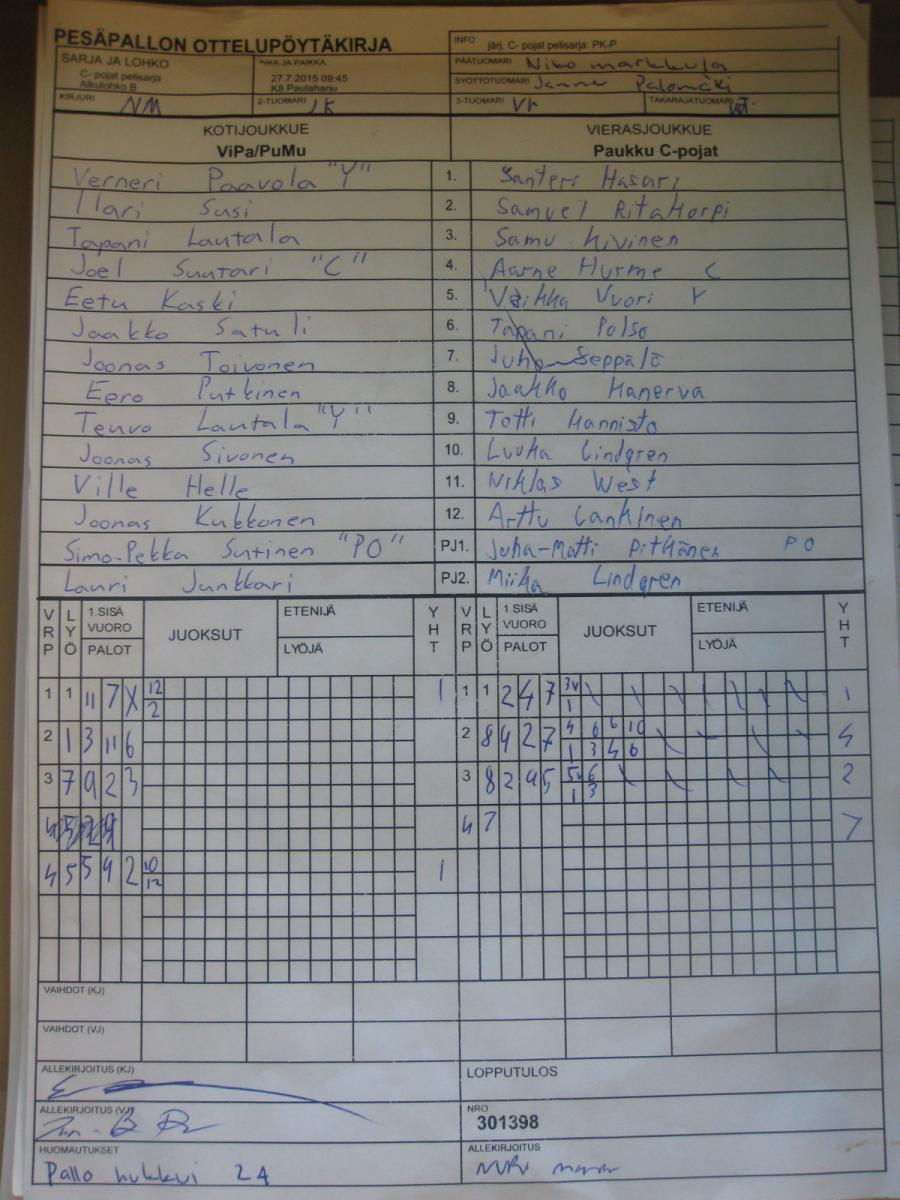 PESÄPALLON OTTELUPÖYTÄKIRJA
INFO järj. C- pojat pelisarja: PK-P
SARJA JA LOHKO
C- pojat pelisarja
Alkulohko B
AIKA JA PAIKKA
27.7.2015 09:45
K8 Paulaharju
PÄÄTUOMARI Niko markkula
SYÖTTÖTUOMARI Janne Palomäki
KIRJURI NM
2-TUOMARI JK
3-TUOMARI
TAKARAJATUOMARI
KOTIJOUKKUE VIERASJOUKKUE
ViPa/PuMu Paukku C-pojat
Verneri Paavola "Y" 1. Santeri Hasari
Ilari Susi 2. Samuel Ritakorpi
Tapani Lautala 3. Samu Kivinen
Joel Suutari "C" 4. Aarne Hurme C
Eetu Kaski 5. Veikka Vuori Y
Jaakko Satuli 6. Tapani Polso
Joonas Toivonen 7. Juho Seppälä
Eero Putkinen 8. Jaakko Hanerva
Teuvo Lautala "Y" 9. Totti Hannisto
Joonas Sivonen 10. Luuka Lindgren
Ville Helle 11. Niklas West
Joonas Kukkonen 12. Arttu Lankinen
Simo-Pekka Sutinen "PO" PJ1. Juha-Matti Pitkänen PO
Lauri Junkkari PJ2. Miika Lindgren
VRP LYÖ 1.SISÄ VUORO PALOT JUOKSUT ETENIJÄ LYÖJÄ YHT VRP LYÖ 1.SISÄ VUORO PALOT JUOKSUT ETENIJÄ LYÖJÄ YHT
1 1 11 7 X 12 2 1 1 1 2 4 7 3v 1 1
2 1 3 11 6 2 8 9 2 7 4 6 6 10 1 3 4 6 4
3 7 9 2 3 3 8 2 9 5 5v 6 1 3 2
4 7 7
4 5 5 9 2 10 12 1
VAIHDOT (KJ)
VAIHDOT (VJ)
ALLEKIRJOITUS (KJ)
LOPPUTULOS
ALLEKIRJOITUS (VJ)
NRO
301398
HUOMAUTUKSET
Pallo hukkui 24
ALLEKIRJOITUS